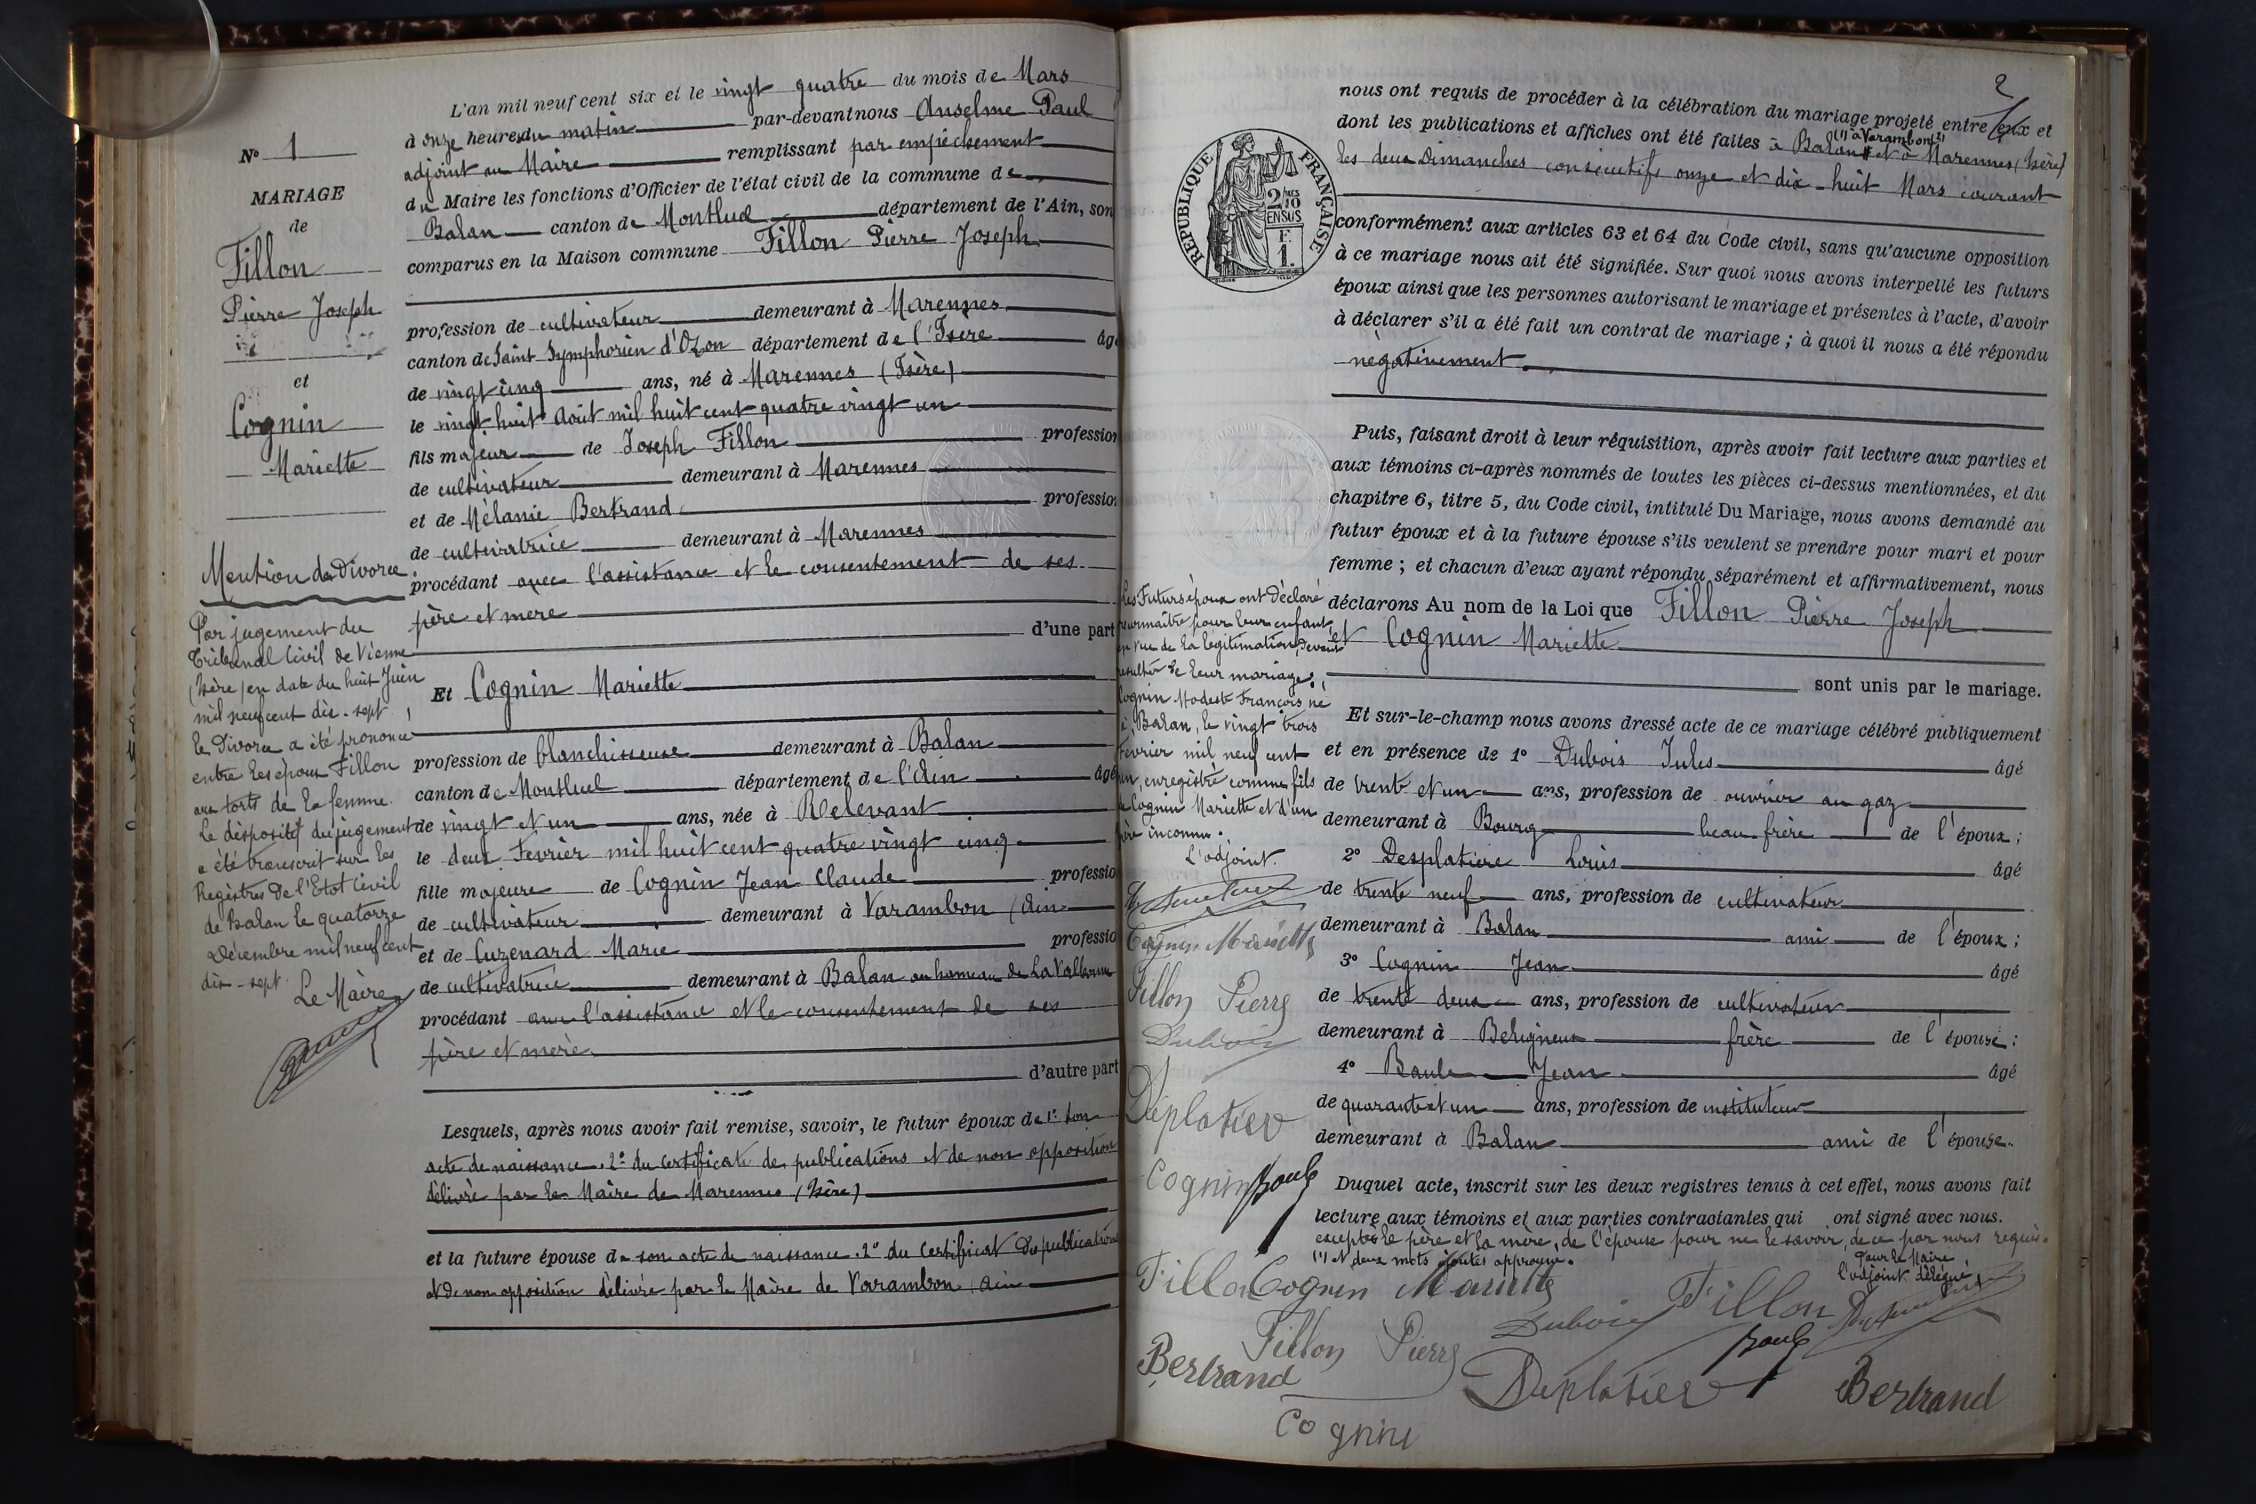 N° 1
MARIAGE
de
Fillon
Pierre Joseph
et
Cognin
Mariette
Mention de Divorce
Par jugement du
Tribunal Civil de Vienne
(Isère) en date du huit Juin
mil neuf cent dix-sept,
le Divorce a été prononcé
entre les époux Fillon
aux torts de la femme.
Le dispositif du jugement
a été transcrit sur les
Registres de l'Etat Civil
de Balan le quatorze
Décembre mil neuf cent
dix-sept.
Le Maire
L'an mil neuf cent six et le vingt quatre du mois de Mars
à onze heures du matin par-devant nous Anselme Paul
adjoint au Maire remplissant par empêchement
du Maire les fonctions d'Officier de l'état civil de la commune de
Balan canton de Montluel département de l'Ain, son
comparus en la Maison commune Fillon Pierre Joseph
profession de cultivateur demeurant à Marennes
canton de Saint Symphorien d'Ozon département de l'Isère âgé
de vingt cinq ans, né à Marennes (Isère)
le vingt huit Août mil huit cent quatre vingt un
fils majeur de Joseph Fillon profession
de cultivateur demeurant à Marennes
et de Mélanie Bertrand profession
de cultivatrice demeurant à Marennes
procédant avec l'assistance et le consentement de ses
père et mère
d'une part
Et Cognin Mariette
profession de blanchisseuse demeurant à Balan
canton de Montluel département de l'Ain âgé
de vingt et un ans, née à Relevant
le deux Février mil huit cent quatre vingt cinq
fille majeure de Cognin Jean Claude professio
de cultivateur demeurant à Varambon (Ain
et de Cuzenard Marie professio
de cultivatrice demeurant à Balan au hameau de La Valbonne
procédant avec l'assistance et le consentement de ses
père et mère
d'autre part
Lesquels, après nous avoir fait remise, savoir, le futur époux de 1° son
acte de naissance. 2° du certificat de publications et de non opposition
délivré par le Maire de Marennes (Isère)
et la future épouse de son acte de naissance. 2° du certificat de publication
et de non opposition délivré par le Maire de Varambon, Ain
2
nous ont requis de procéder à la célébration du mariage projeté entre eux et
dont les publications et affiches ont été faites à Balan (1) à Varambon (1) et à Marennes (Isère)
les deux Dimanches consécutifs onze et dix-huit Mars courant
RÉPUBLIQUE FRANÇAISE
2/10
EN SUS
F.
1.
conformément aux articles 63 et 64 du Code civil, sans qu'aucune opposition
à ce mariage nous ait été signifiée. Sur quoi nous avons interpellé les futurs
époux ainsi que les personnes autorisant le mariage et présentes à l'acte, d'avoir
à déclarer s'il a été fait un contrat de mariage ; à quoi il nous a été répondu
négativement
Puis, faisant droit à leur réquisition, après avoir fait lecture aux parties et
aux témoins ci-après nommés de toutes les pièces ci-dessus mentionnées, et du
chapitre 6, titre 5, du Code civil, intitulé Du Mariage, nous avons demandé au
futur époux et à la future épouse s'ils veulent se prendre pour mari et pour
femme ; et chacun d'eux ayant répondu séparément et affirmativement, nous
déclarons Au nom de la Loi que Fillon Pierre Joseph
et Cognin Mariette
sont unis par le mariage.
Et sur-le-champ nous avons dressé acte de ce mariage célébré publiquement
et en présence de 1° Dubois Jules âgé
de trente et un ans, profession de ouvrier au gaz
demeurant à Bourg beau-frère de l'époux ;
2° Desplatiere Louis âgé
de trente neuf ans, profession de cultivateur
demeurant à Balan ami de l'époux ;
3° Cognin Jean âgé
de trente deux ans, profession de cultivateur
demeurant à Béligneux frère de l'épouse ;
4° Baule Jean âgé
de quarante et un ans, profession de instituteur
demeurant à Balan ami de l'épouse.
Duquel acte, inscrit sur les deux registres tenus à cet effet, nous avons fait
lecture aux témoins et aux parties contractantes qui ont signé avec nous.
excepté le père et la mère, de l'épouse pour ne le savoir, de ce par nous requis.
(1) et deux mots ajoutés approuvé.
Pour le Maire
l'adjoint délégué
Les Futurs époux ont Déclaré
reconnaître pour leur enfant,
en vue de la légitimation, devant
résulter de leur mariage,
Cognin Modeste François né
à Balan, le vingt trois
Février mil neuf cent
un, enregistré comme fils
de Cognin Mariette et d'un
père inconnu.
L'adjoint.
Cognin Mariette
Fillon Pierre
Dubois
Déplatier
Cognin Baule
Fillon Cognin Mariette Fillon
Dubois
Fillon Pierre Baule
Bertrand Déplatier Bertrand
Cognin